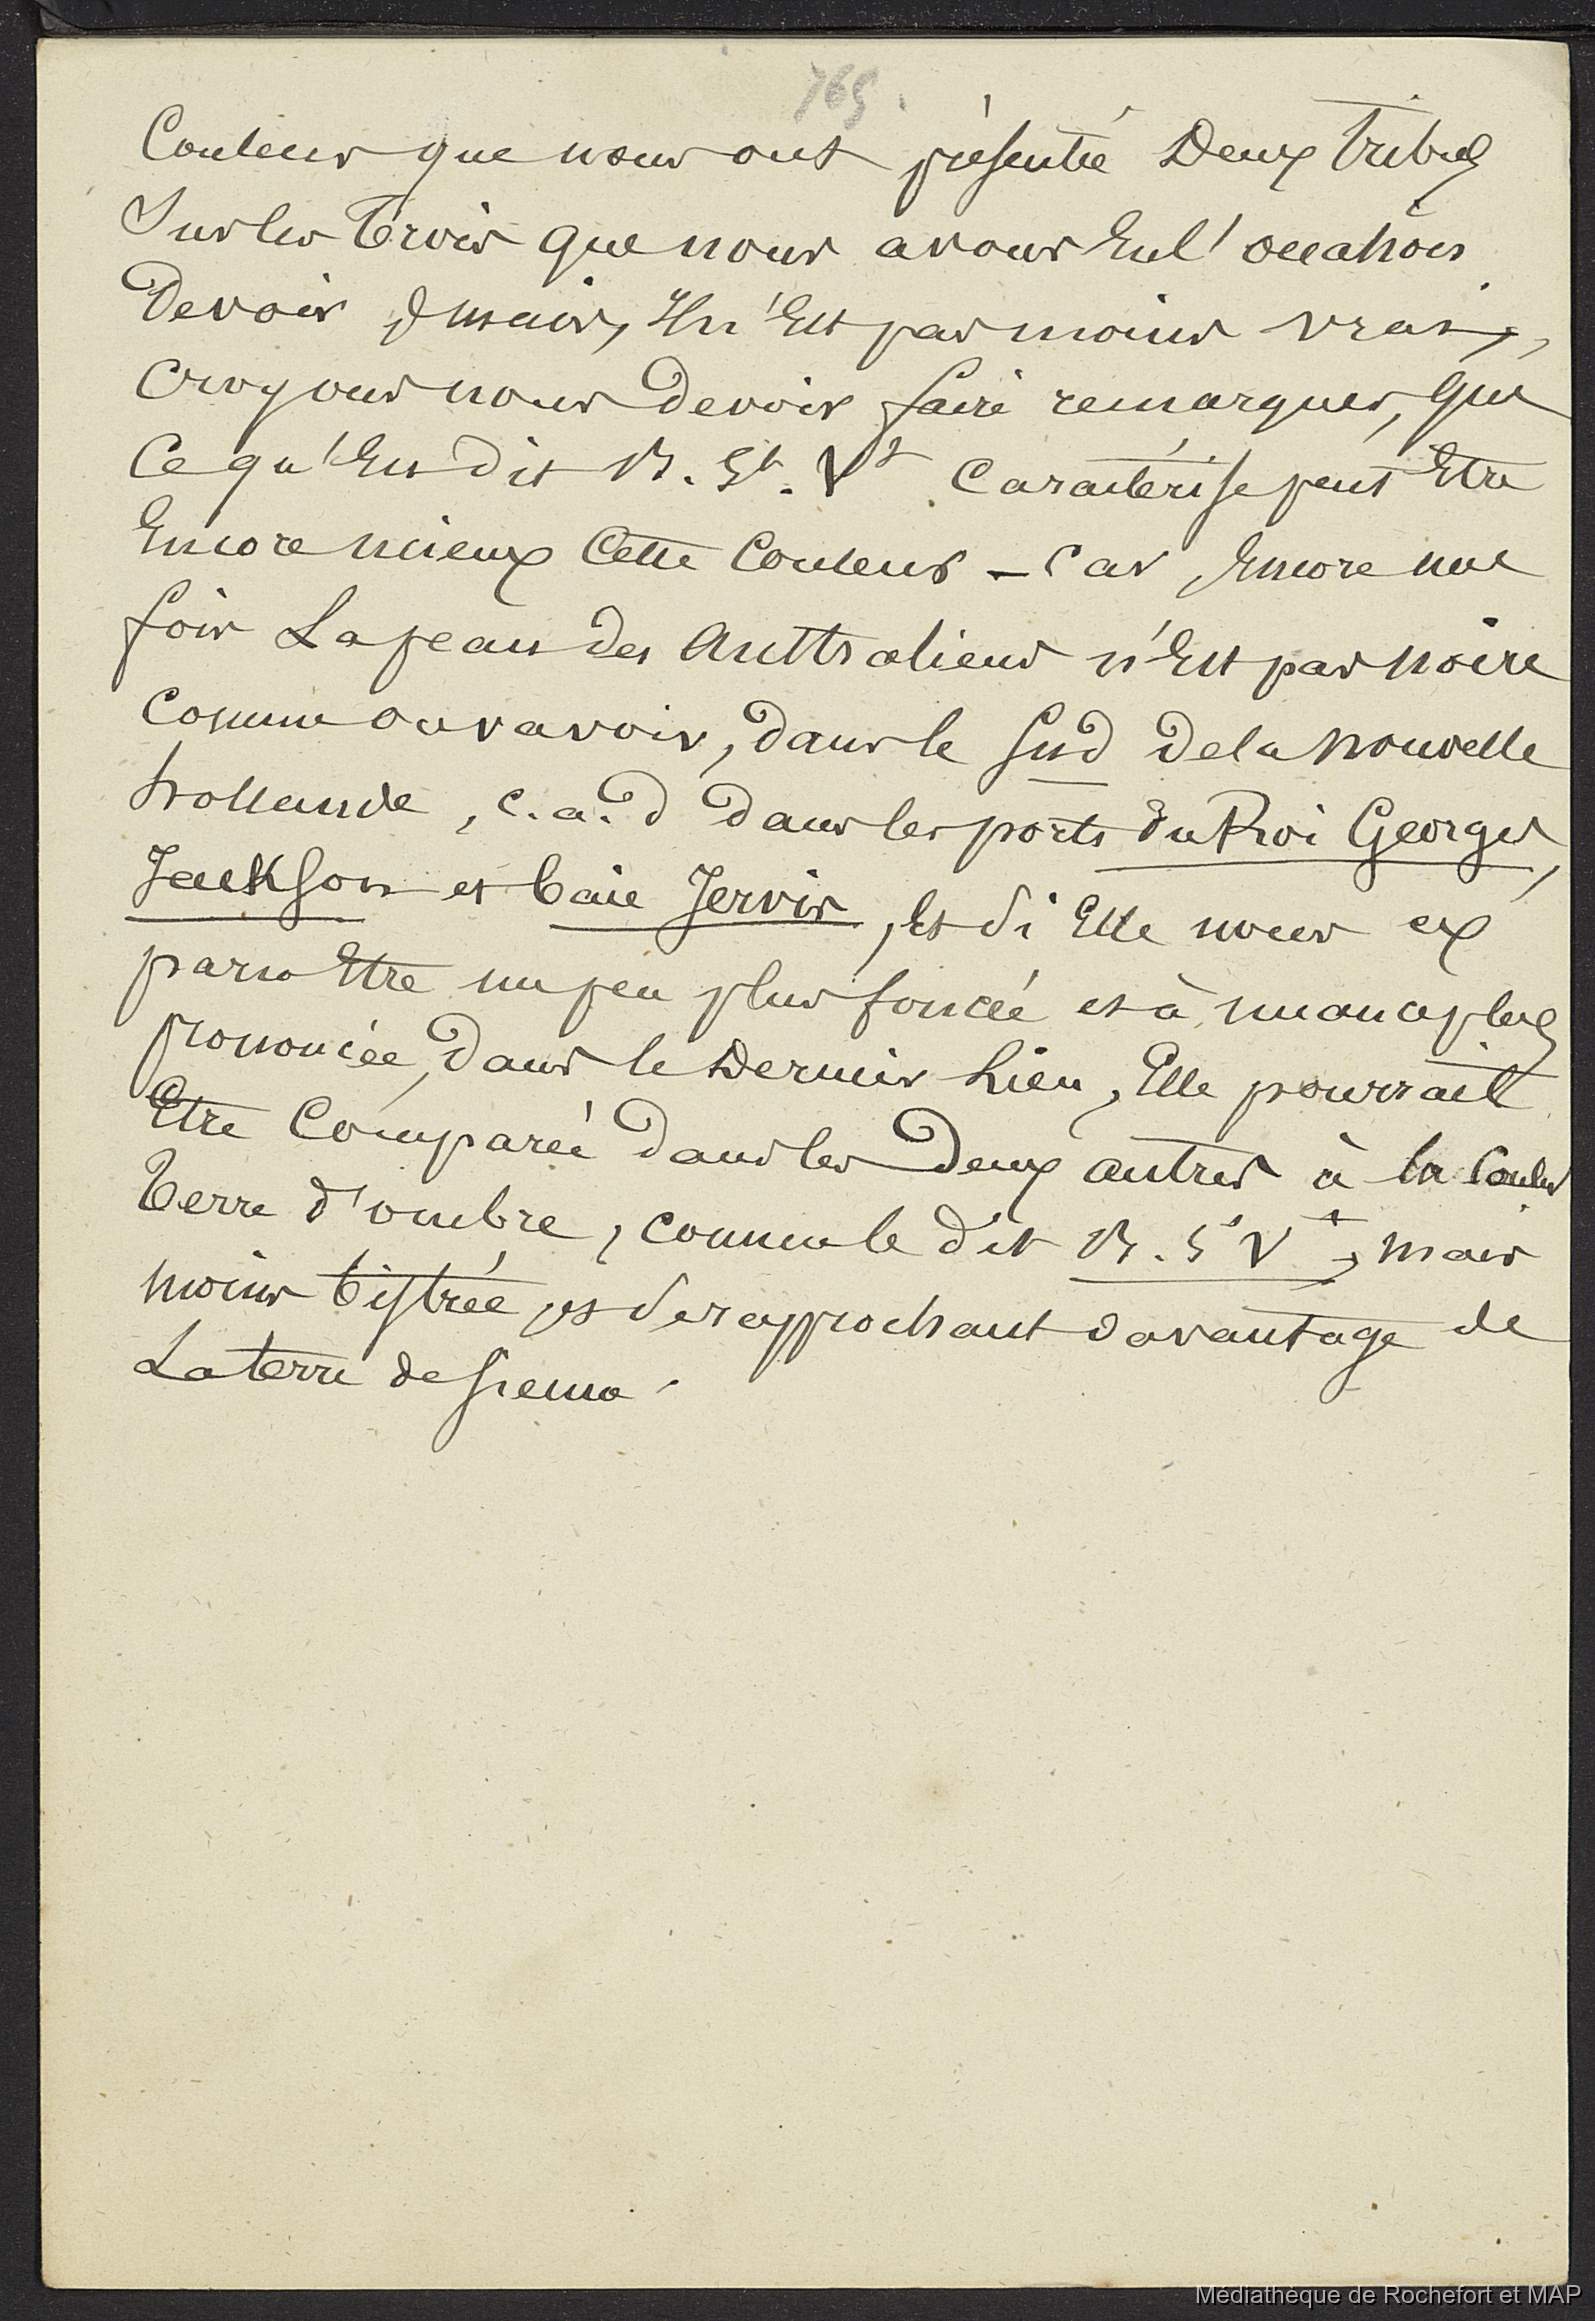 769.
Couleur que nous ont présenté Deux tribus
Sur les trois que nous avons Eu l'occasion
De voir, mais, Il n'Est pas moins vrai,
Croyons nous Devoir faire remarquer, que
Ce qu'En dit B. St. Vt Caractérise peut Etre
Encore mieux Cette Couleur – car, Encore une
fois La peau des Australiens n'Est pas Noire
Comme on va voir, dans le Sud de la Nouvelle
hollande, c. a. d dans les ports du Roi Georges,
Jackson et baie Jervis, Et si Elle nous a
paru Etre un peu plus foncée et à nuance plus
prononcée, dans le Dernier Lieu, Elle pourrait
Etre Comparée dans les Deux autres à la Couleur
terre d'ombre, comme le dit B. St Vt, mais
moins bistrée, et se rapprochant davantage de
La terre de Sienne.
Médiathèque de Rochefort et MAP